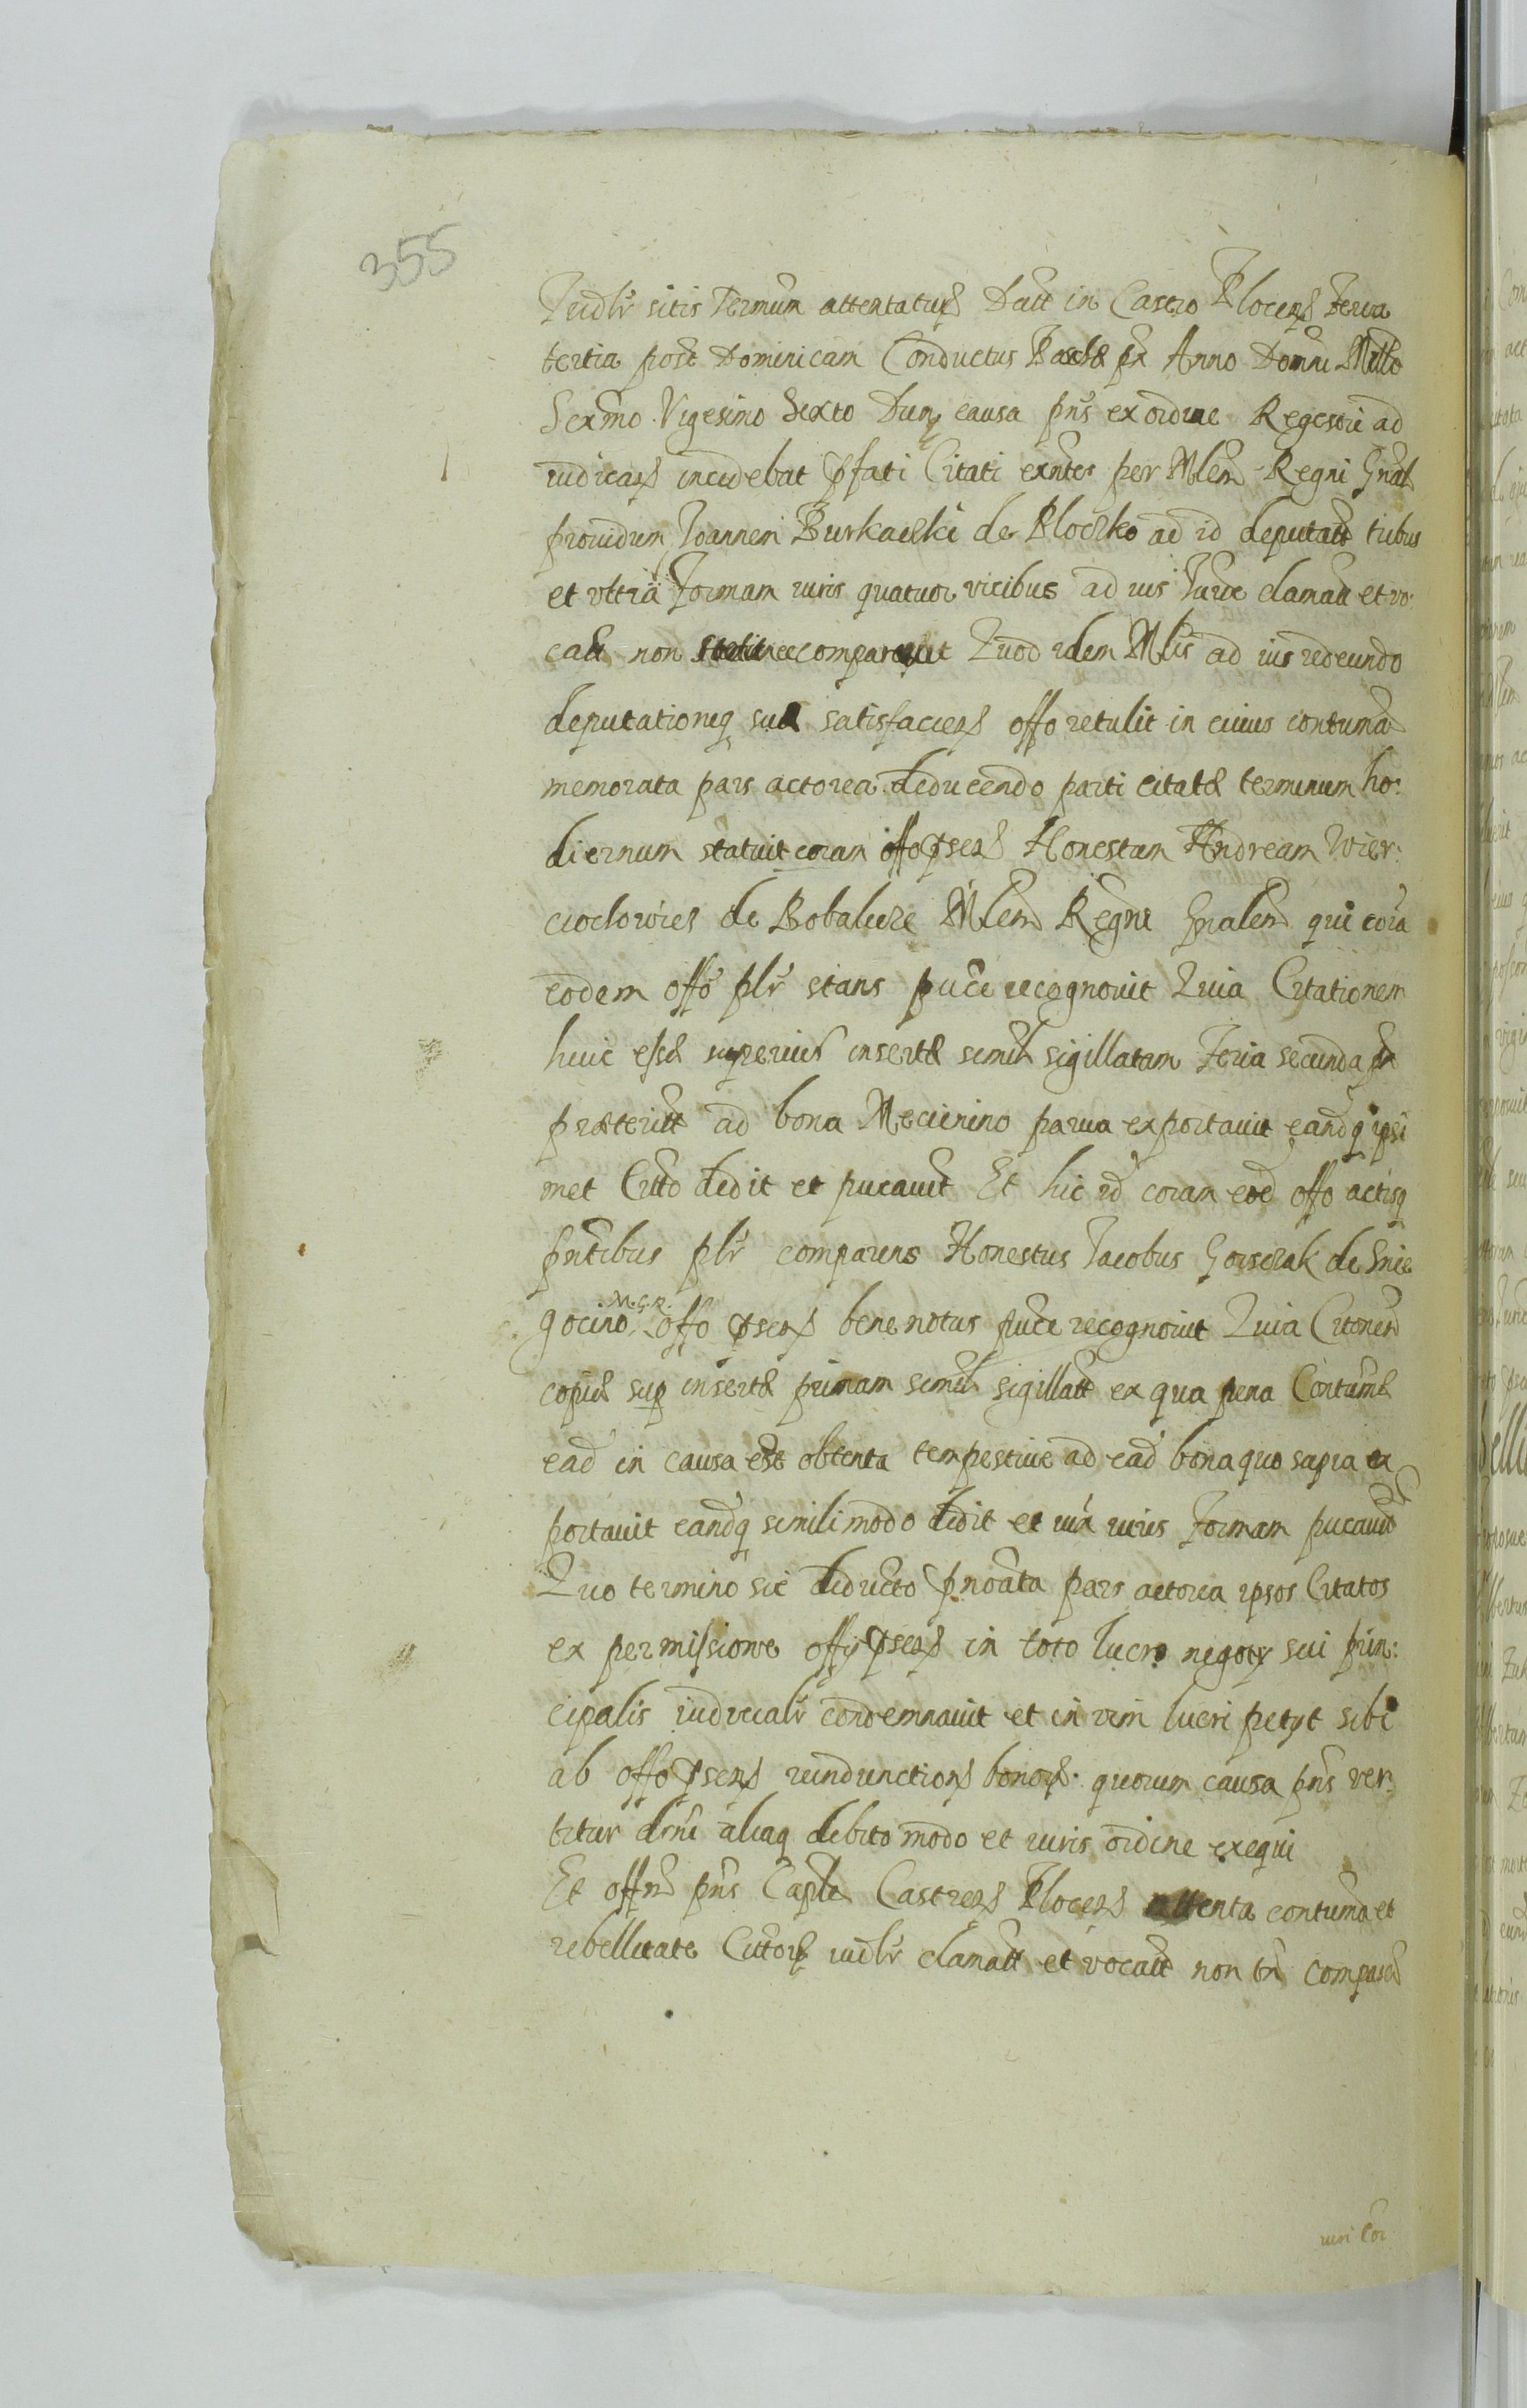 355
Judlr sitis Termum attentatuꝝ Datt in Castro Plocen Feria
tertia post Dominicam Conductus Paschæ px Anno Domni Millo
Sexmo Vigesimo Sexto Dumq causa pns ex ordine Regestri ad
iudican incidebat Pfati Citati exntes per Mlem Regni Gnal
prouidum Joannem Burkacki de Ploczko ad id deputatt tribus
et vltra Formam iuris quatuor vicibus ad ius Jurde clamatt et vo:
catt non stetit nec comparuit Quod idem Mlis ad ius redeundo
deputationiq suæ satisfacien offo retulit in cuius contuma
memorata pars actorea deducendo parti citatæ terminum ho:
diernum statuit coram offo psen Honestam Andream Wier:
ciochowicz de Bobalice Mlem Regni Gnalem qui cora
eodem offo plr stans puce recognouit Quia Citationem
huic essæ superius insertæ simil sigillatam Feria secunda px
præteritt ad bona Mecinino parua exportauit eandq ipsi
met Citto dedit et pucauit Et hic id coram eod offo actisq
pntibus plr comparens Honestus Jacobus Gorsczak de Snie
gocino M.G.R. offo psen bene notus puce recognouit Quia Citonem
copiæ sup insertæ primam simil sigillatt ex qua pena Contumæ
ead in causa est obtenta tempestiue ad ead bona quo supra ex
portauit eandq simili modo dedit et iux iuris Formam pucauit
Quo termino sic deducto pnoata pars actorea ipsos Citatos
ex permissione offy psen in toto lucro negoty sui prin:
cipalis iudicialr condemnauit et in vim lucri petyt sibi
ab offo psen iundunction bonoꝝ quorum causa pns ver:
titur dni aliaq debito modo et iuris ordine exequi
Et offm pns Caple Castren Plocen attenta contuma et
rebellitate Cittoꝝ iudlr clamatt et vocatt non tn comparen
iuri Cor